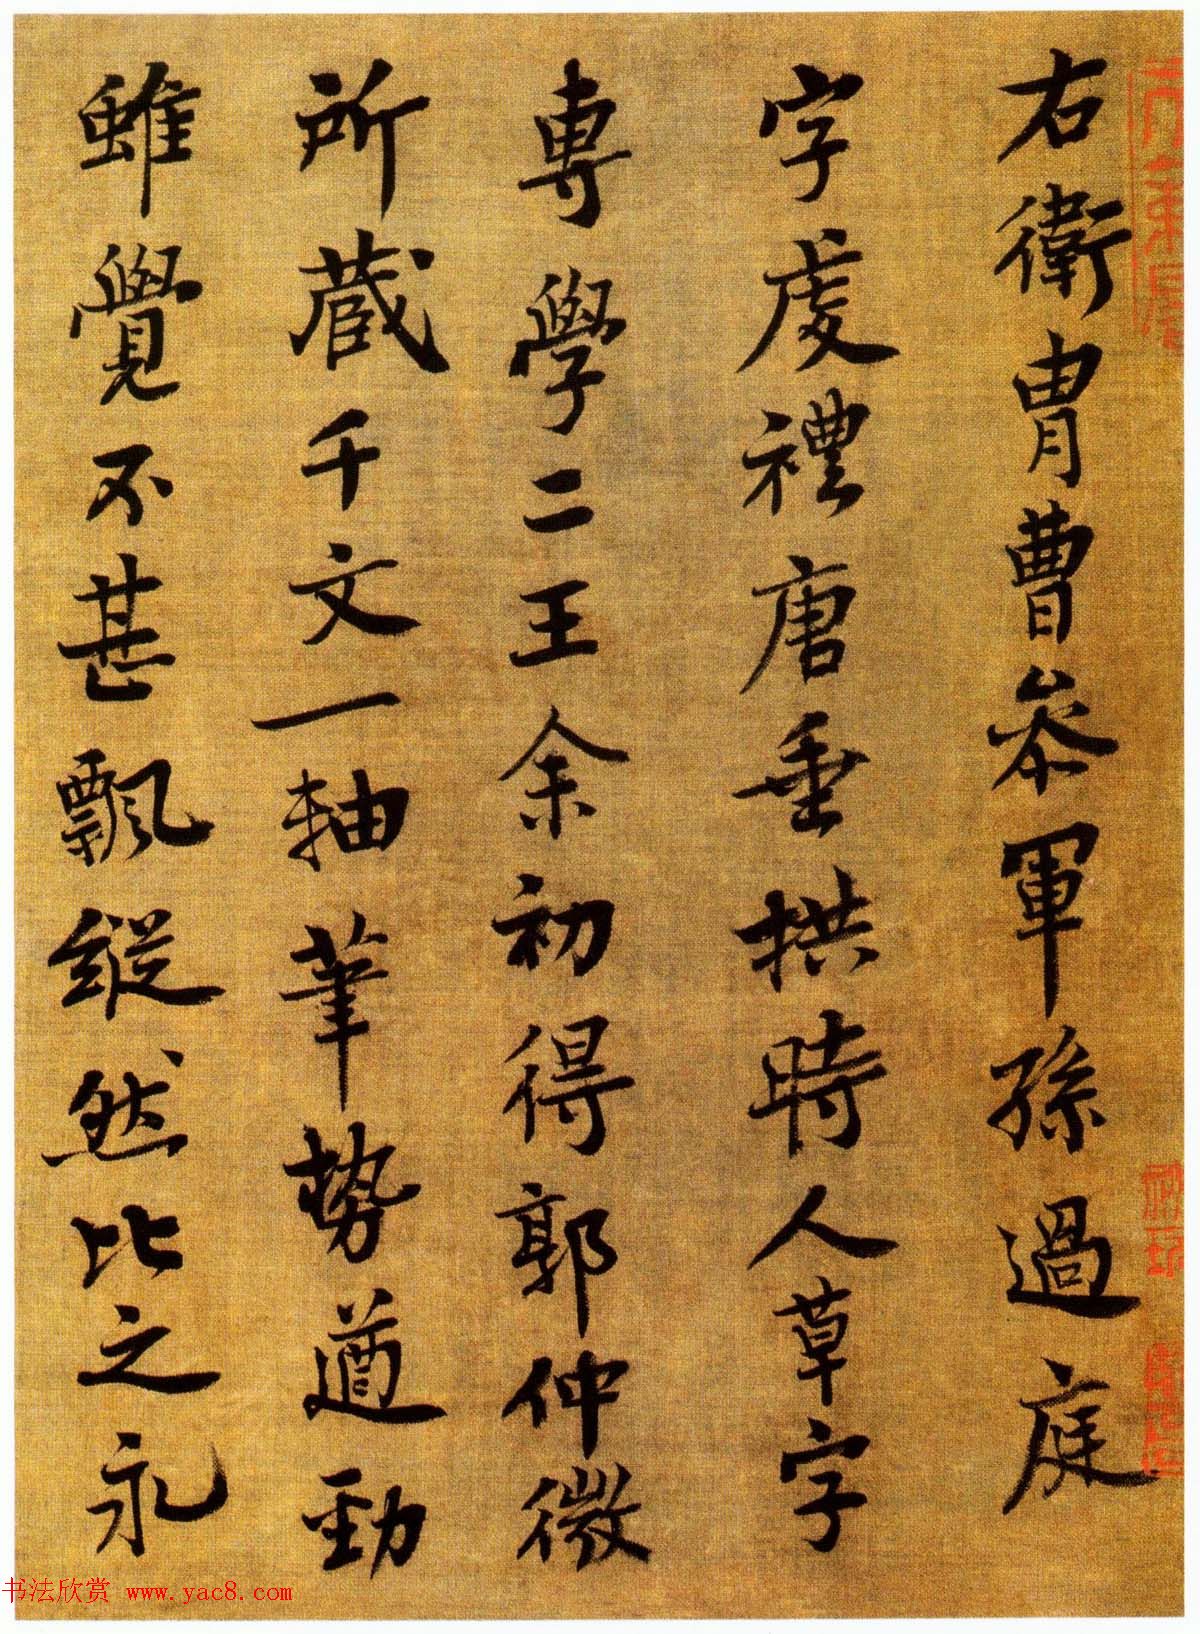 右衛胄曹參軍孫過庭
字虔禮唐垂拱時人草字
專學二王余初得郭仲微
所藏千文一軸筆勢遒勁
雖覺不甚飄縱然比之永
书法欣赏 www.yac8.com